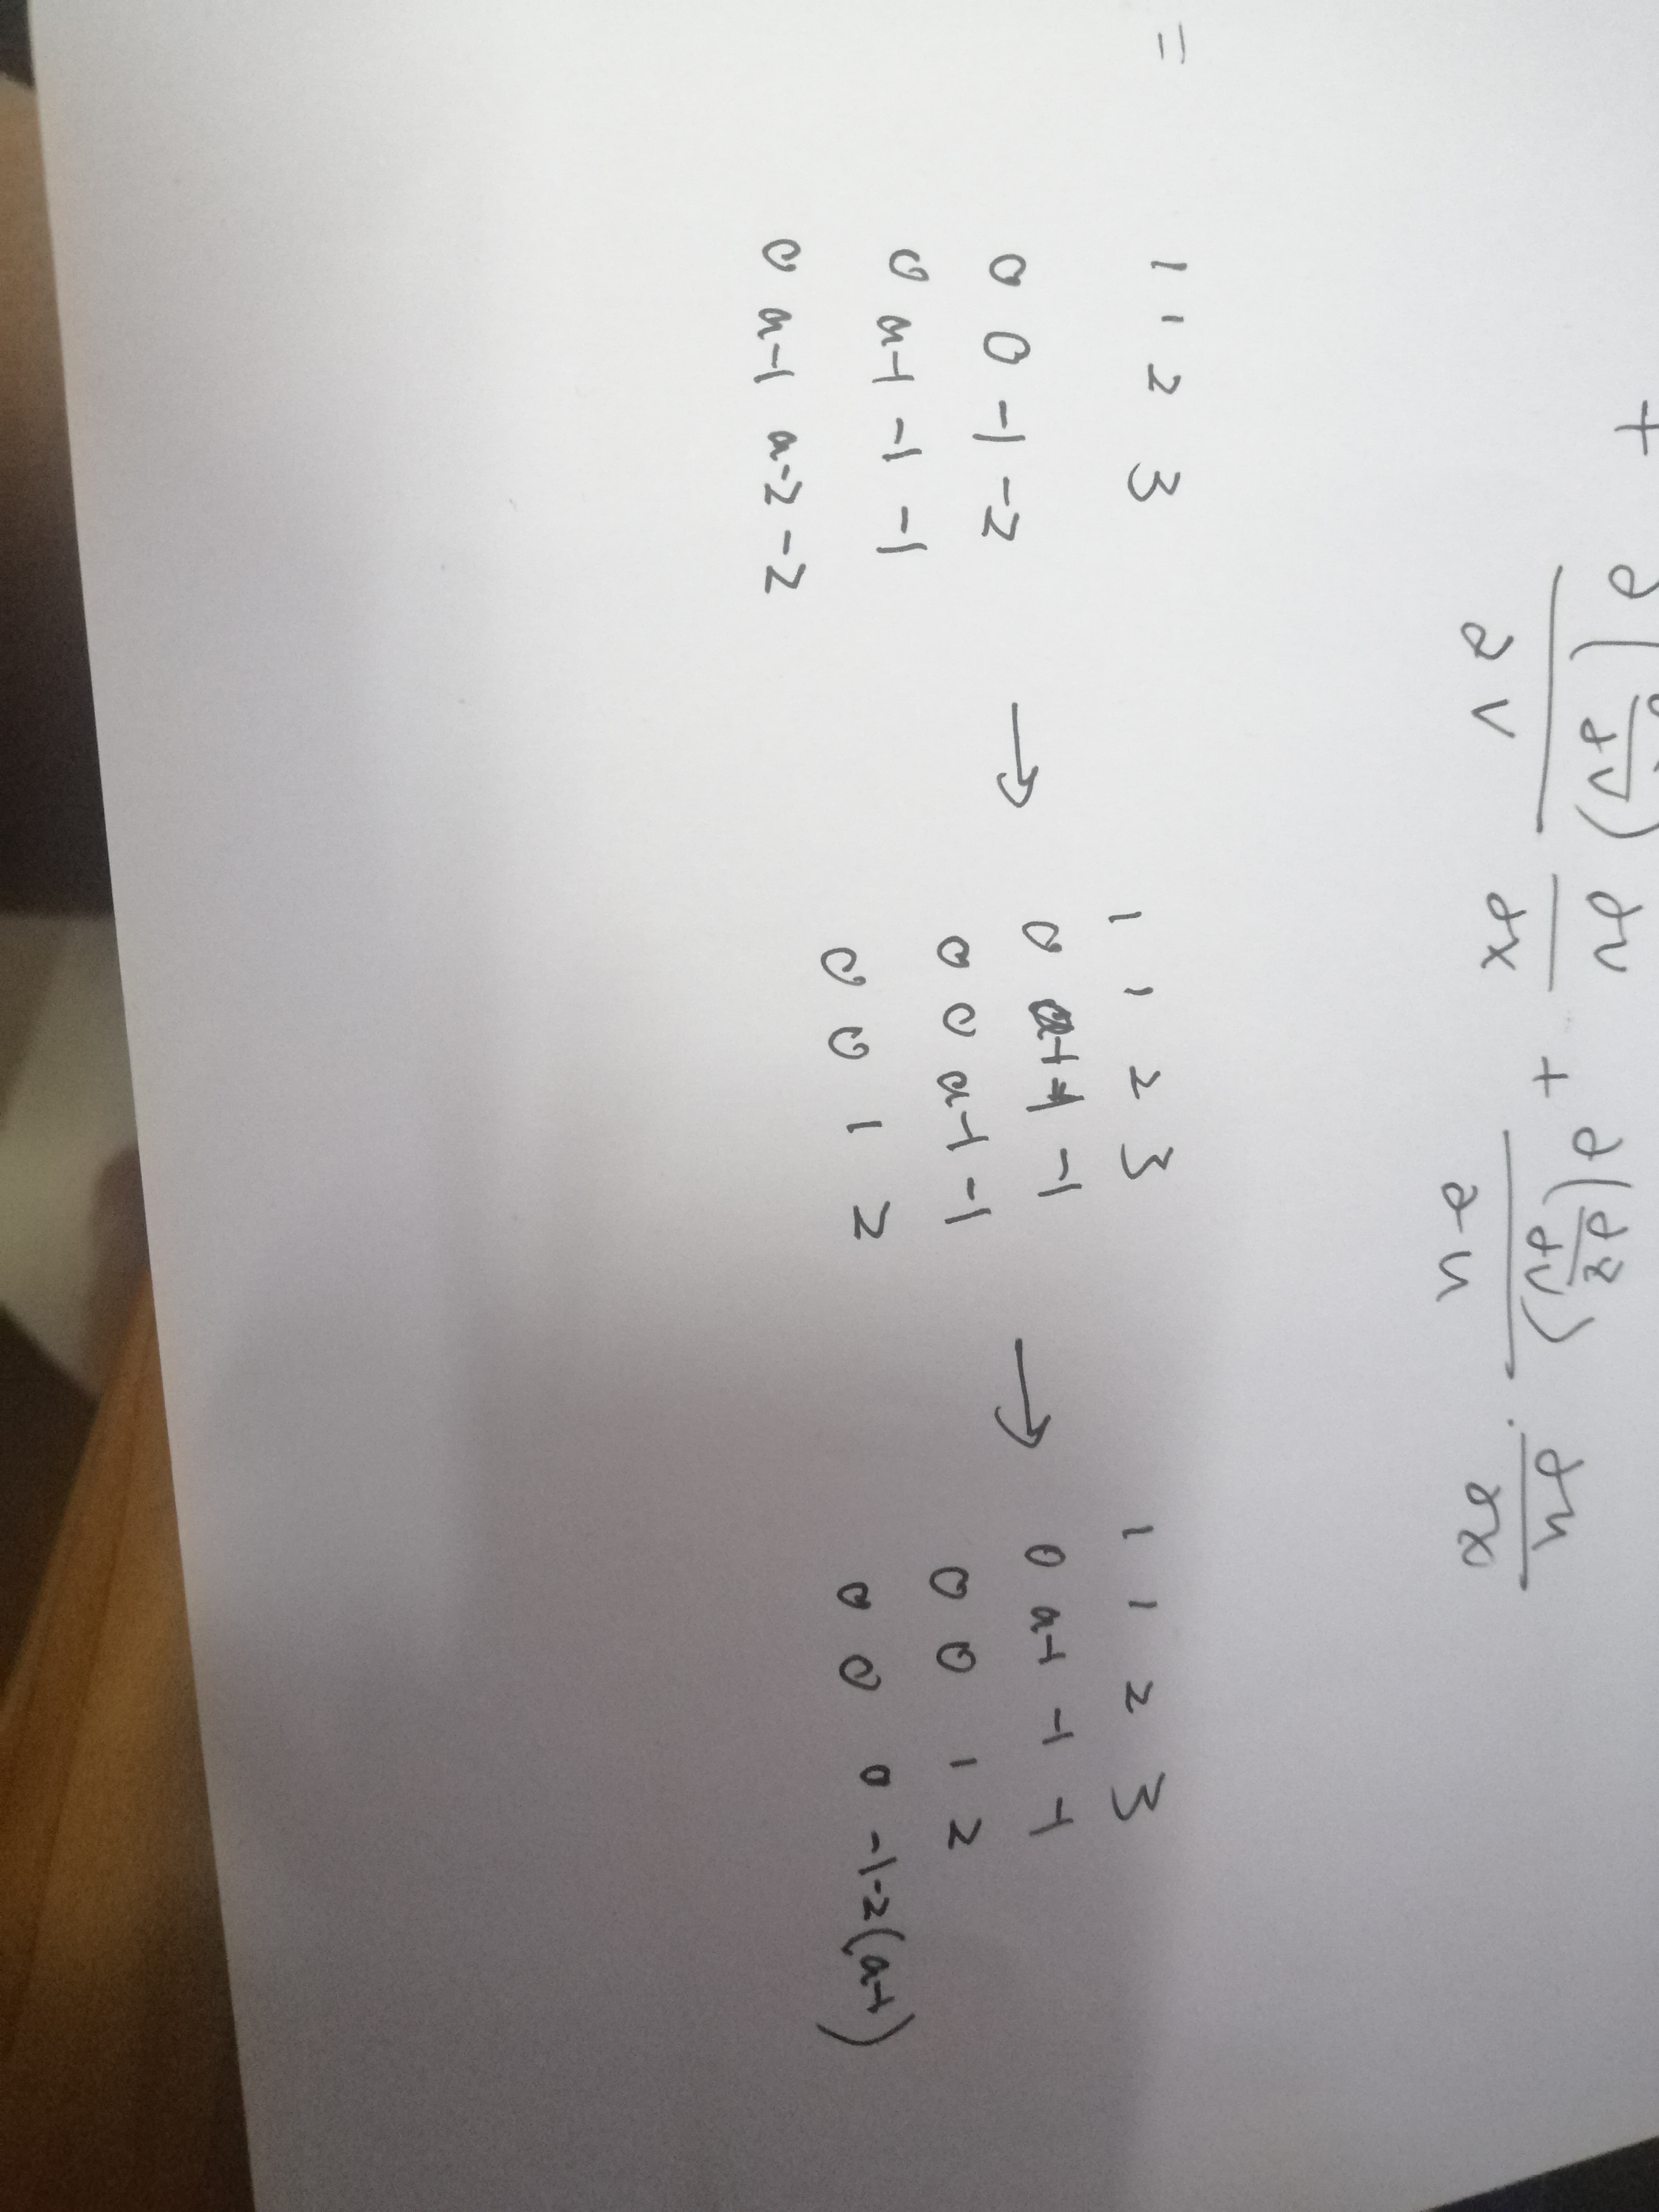 + ∂(∂/∂v)/∂v ∂v/∂x + ∂(∂z/∂v)/∂u · ∂u/∂x
=
1 1 2 3
0 0 -1 -2
0 a-1 -1 -1
0 a-1 a-2 -2
→
1 1 2 3
0 a-1 -1 -1
0 0 a-1 -1
0 0 1 2
→
1 1 2 3
0 a-1 -1 -1
0 0 1 2
0 0 0 -1-2(a-1)